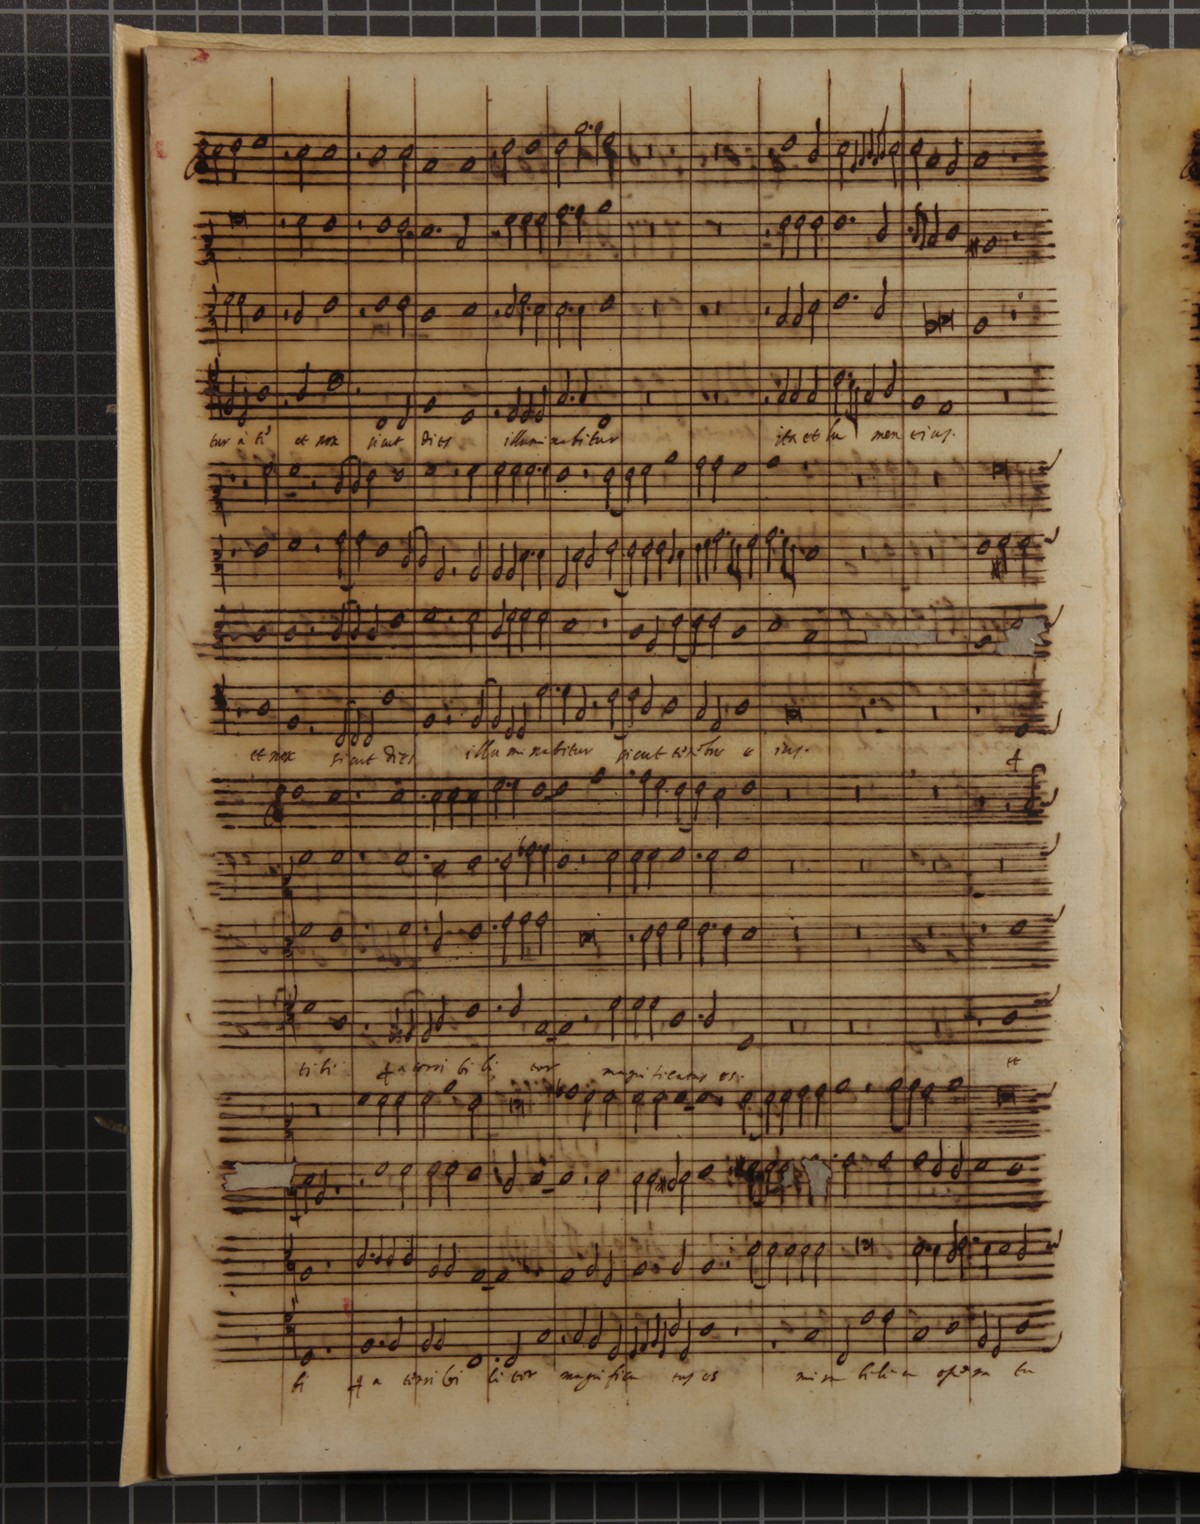 tur a te et nox sicut dies illuminabitur ita et lu men eius.
et nox sicut dies illu minabitur sicut tenebre e ius.
q
tibi q a terri bi li ter magnificatus es. et
bi q a terri bi li ter magnifica tus es mira bilia opera tu